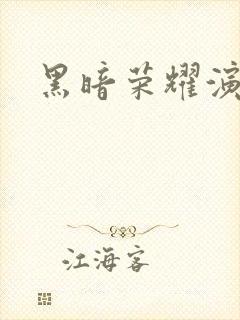 黑暗荣耀演
江海客